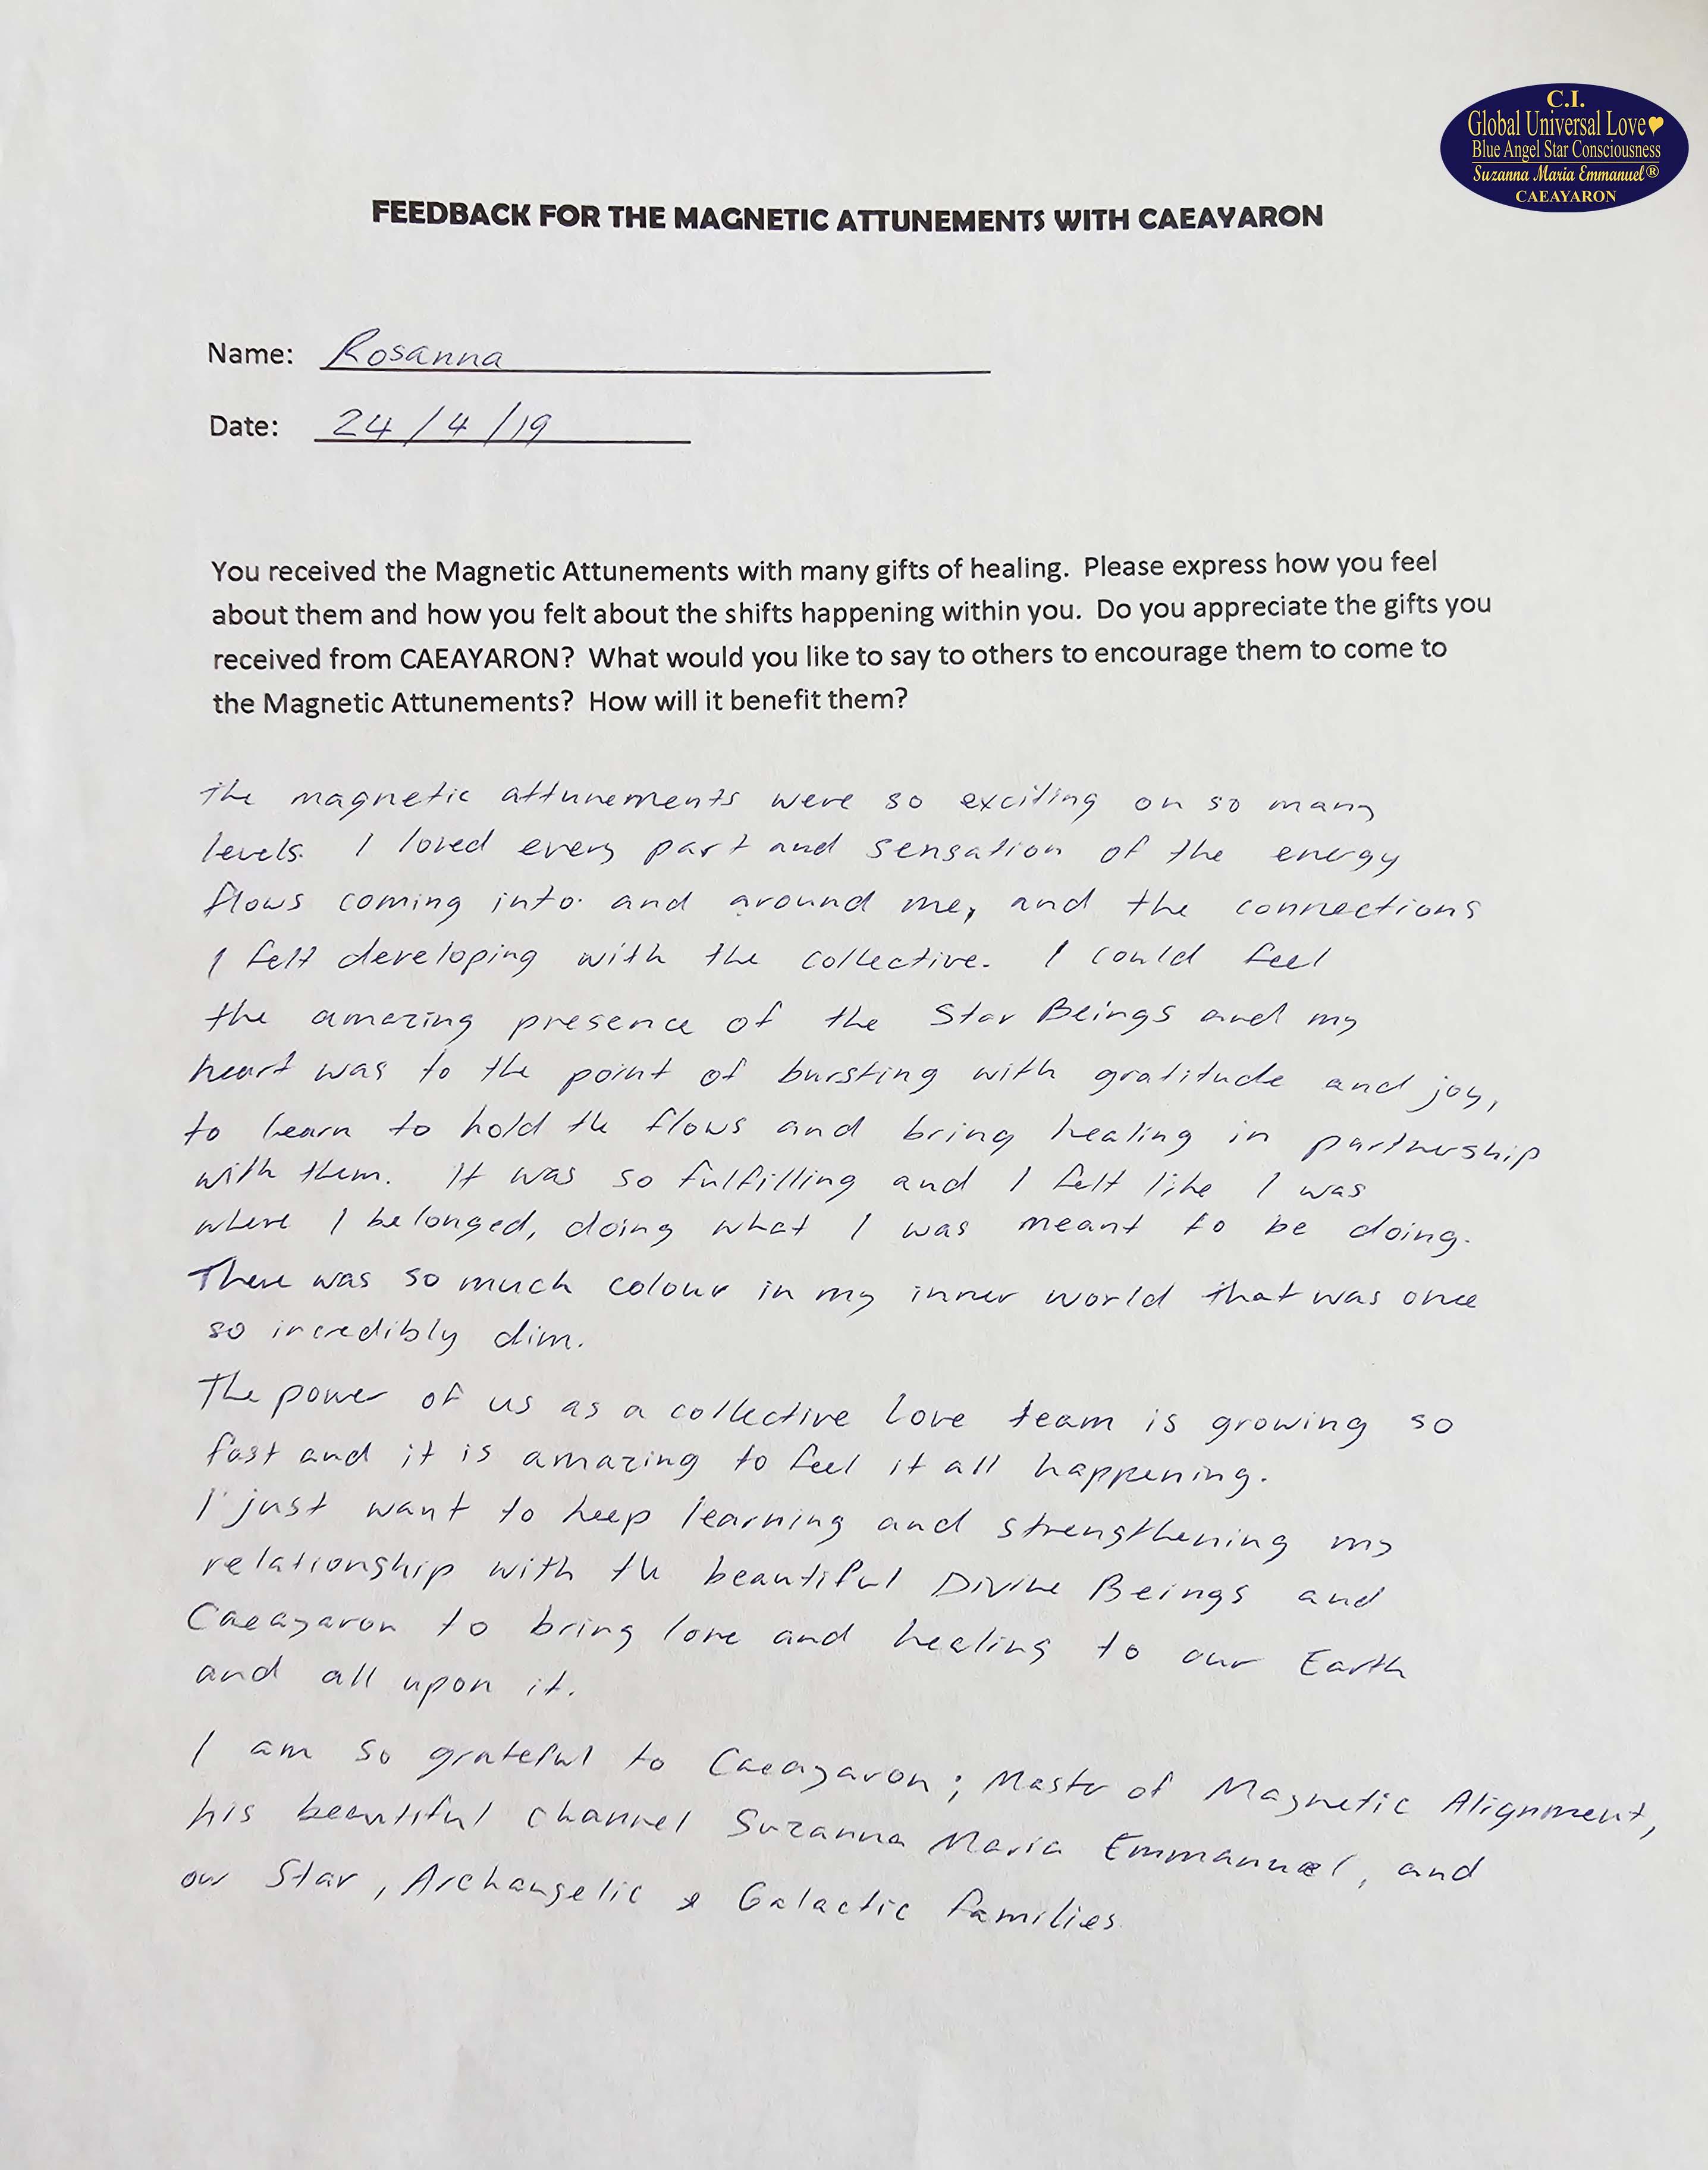 C.I.
Global Universal Love
Blue Angel Star Consciousness
Suzanna Maria Emmanuel®
CAEAYARON
FEEDBACK FOR THE MAGNETIC ATTUNEMENTS WITH CAEAYARON
Name: Rosanna
Date: 24/4/19
You received the Magnetic Attunements with many gifts of healing. Please express how you feel
about them and how you felt about the shifts happening within you. Do you appreciate the gifts you
received from CAEAYARON? What would you like to say to others to encourage them to come to
the Magnetic Attunements? How will it benefit them?
The magnetic attunements were so exciting on so many
levels. I loved every part and sensation of the energy
flows coming into and around me, and the connections
I felt developing with the collective. I could feel
the amazing presence of the Star Beings and my
heart was to the point of bursting with gratitude and joy,
to learn to hold the flows and bring healing in partnership
with them. It was so fulfilling and I felt like I was
where I belonged, doing what I was meant to be doing.
There was so much colour in my inner world that was once
so incredibly dim.
The power of us as a collective love team is growing so
fast and it is amazing to feel it all happening.
I just want to keep learning and strengthening my
relationship with the beautiful Divine Beings and
Caeayaron to bring love and healing to our Earth
and all upon it.
I am so grateful to Caeayaron; Master of Magnetic Alignment,
his beautiful channel Suzanna Maria Emmanuel, and
our Star, Archangelic & Galactic families.